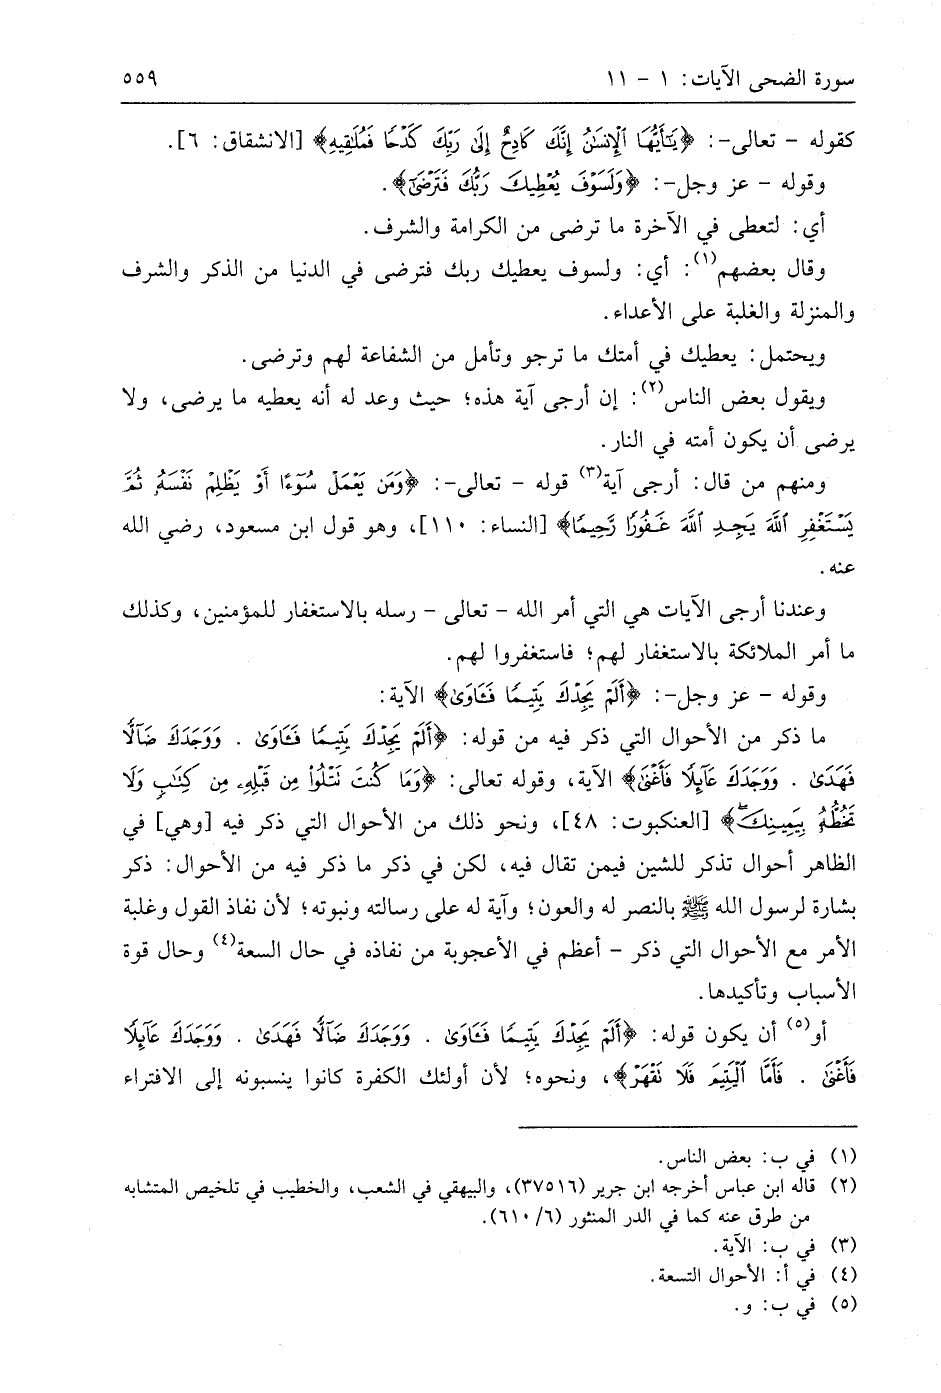 سورة الضحى الآيات: ١ - ١١ ٥٥٩
كقوله - تعالى-: ﴿يَٰٓأَيُّهَا ٱلْإِنسَٰنُ إِنَّكَ كَادِحٌ إِلَىٰ رَبِّكَ كَدْحًا فَمُلَٰقِيهِ﴾ [الانشقاق: ٦].
وقوله - عز وجل-: ﴿وَلَسَوْفَ يُعْطِيكَ رَبُّكَ فَتَرْضَىٰٓ﴾.
أي: لتعطى في الآخرة ما ترضى من الكرامة والشرف.
وقال بعضهم(١): أي: ولسوف يعطيك ربك فترضى في الدنيا من الذكر والشرف
والمنزلة والغلبة على الأعداء.
ويحتمل: يعطيك في أمتك ما ترجو وتأمل من الشفاعة لهم وترضى.
ويقول بعض الناس(٢): إن أرجى آية هذه؛ حيث وعد له أنه يعطيه ما يرضى، ولا
يرضى أن يكون أمته في النار.
ومنهم من قال: أرجى آية(٣) قوله - تعالى-: ﴿وَمَن يَعْمَلْ سُوٓءًا أَوْ يَظْلِمْ نَفْسَهُۥ ثُمَّ
يَسْتَغْفِرِ ٱللَّهَ يَجِدِ ٱللَّهَ غَفُورًا رَّحِيمًا﴾ [النساء: ١١٠]، وهو قول ابن مسعود، رضي الله
عنه.
وعندنا أرجى الآيات هي التي أمر الله - تعالى - رسله بالاستغفار للمؤمنين، وكذلك
ما أمر الملائكة بالاستغفار لهم؛ فاستغفروا لهم.
وقوله - عز وجل-: ﴿أَلَمْ يَجِدْكَ يَتِيمًا فَـَٔاوَىٰ﴾ الآية:
ما ذكر من الأحوال التي ذكر فيه من قوله: ﴿أَلَمْ يَجِدْكَ يَتِيمًا فَـَٔاوَىٰ . وَوَجَدَكَ ضَآلًّا
فَهَدَىٰ . وَوَجَدَكَ عَآئِلًا فَأَغْنَىٰ﴾ الآية، وقوله تعالى: ﴿وَمَا كُنتَ تَتْلُوا۟ مِن قَبْلِهِۦ مِن كِتَٰبٍ وَلَا
تَخُطُّهُۥ بِيَمِينِكَ﴾ [العنكبوت: ٤٨]، ونحو ذلك من الأحوال التي ذكر فيه [وهي] في
الظاهر أحوال تذكر للشين فيمن تقال فيه، لكن في ذكر ما ذكر فيه من الأحوال: ذكر
بشارة لرسول الله ﷺ بالنصر له والعون؛ وآية له على رسالته ونبوته؛ لأن نفاذ القول وغلبة
الأمر مع الأحوال التي ذكر - أعظم في الأعجوبة من نفاذه في حال السعة(٤) وحال قوة
الأسباب وتأكيدها.
أو(٥) أن يكون قوله: ﴿أَلَمْ يَجِدْكَ يَتِيمًا فَـَٔاوَىٰ . وَوَجَدَكَ ضَآلًّا فَهَدَىٰ . وَوَجَدَكَ عَآئِلًا
فَأَغْنَىٰ . فَأَمَّا ٱلْيَتِيمَ فَلَا تَقْهَرْ﴾، ونحوه؛ لأن أولئك الكفرة كانوا ينسبونه إلى الافتراء
(١) في ب: بعض الناس.
(٢) قاله ابن عباس أخرجه ابن جرير (٣٧٥١٦)، والبيهقي في الشعب، والخطيب في تلخيص المتشابه
من طرق عنه كما في الدر المنثور (٦/ ٦١٠).
(٣) في ب: الآية.
(٤) في أ: الأحوال التسعة.
(٥) في ب: و.